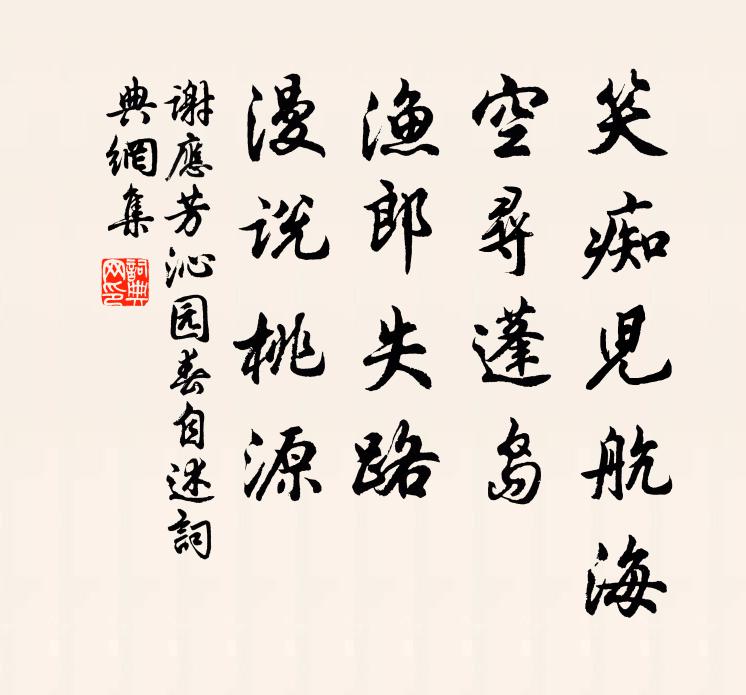 笑痴児航海
空尋蓬岛
漁郎失路
漫说桃源
谢應芳沁园春自述詞
典網集
詞典网印